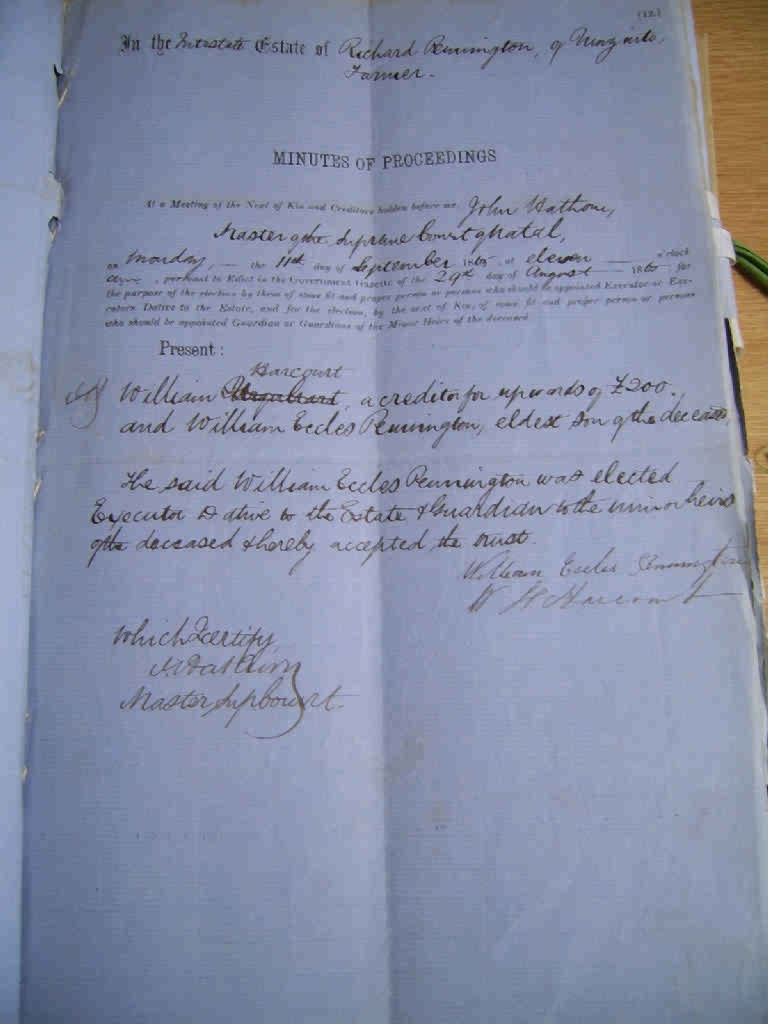 (12.)
In the Intestate Estate of Richard Pennington, of
Farmer.
MINUTES OF PROCEEDINGS
At a Meeting of the Next of Kin and Creditors holden before me John Hathorn,
Master of the Supreme Court of Natal,
on Monday, — the 11th day of September 1865, at eleven — o'clock
pursuant to Edict in the Government Gazette of the 29th day of August — 1865, for
the purpose of the election by them of some fit and proper person or persons who should be appointed Executor or Exe-
cutors Dative to the Estate, and for the election, by the next of Kin, of some fit and proper person or persons
who should be appointed Guardian or Guardians of the Minor Heirs of the deceased
Present :
Harcourt
William a creditor for upwards of £200.
and William Eccles Pennington, eldest son of the deceased.
The said William Eccles Pennington was elected
Executor Dative to the Estate & Guardian to the minor heirs
of the deceased & hereby accepted the trust.
William Eccles Pennington
W H Harcourt
Which I certify
J. Hathorn
Master Sup Court